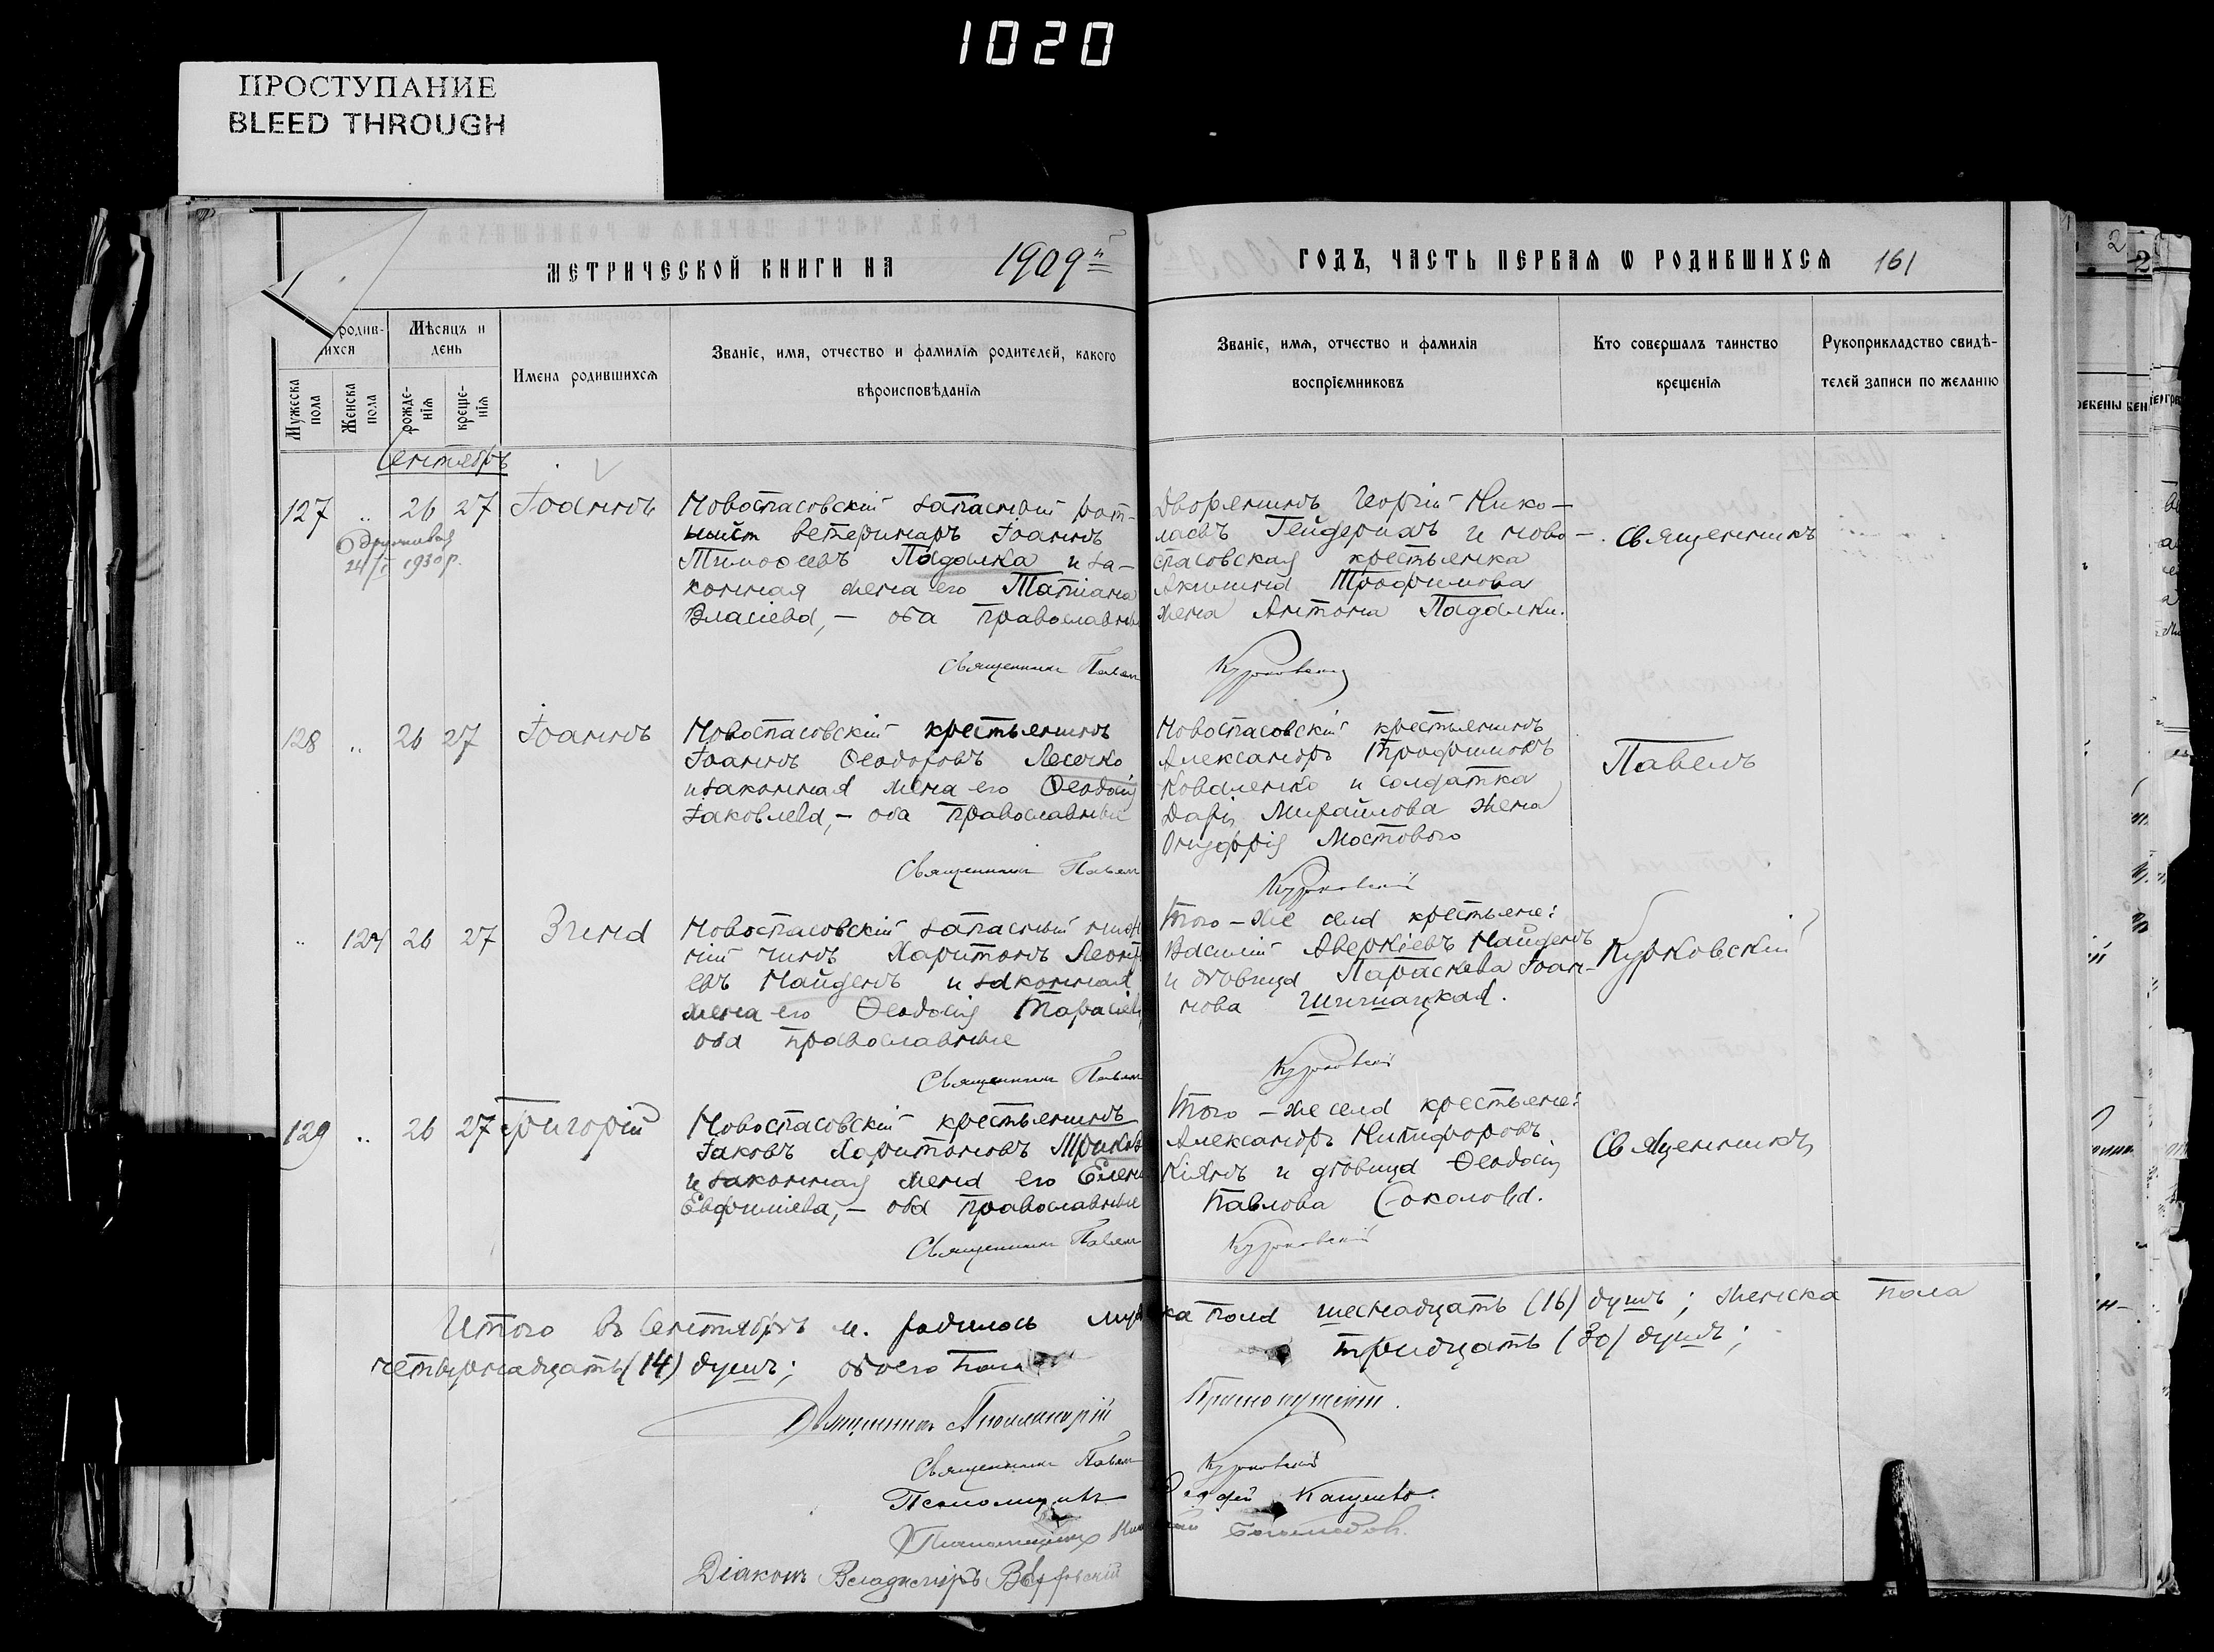 1020
ПРОСТУПАНИЕ
BLEED THROUGH
МЕТРИЧЕСКОЙ КНИГИ НА 1909й
ГОДЪ, ЧАСТЬ ПЕРВАЯ Ѡ РОДИВШИХСЯ 161
родив-
ихся
Мѣсяцъ и
день
Мужеска
пола
Женска
пола
рожде-
нія
креще-
нія
Имена родившихся
Званіе, имя, отчество и фамилія родителей, какого
вѣроисповѣданія
Званіе, имя, отчество и фамилія
воспріемниковъ
Кто совершалъ таинство
крещенія
Рукоприкладство свидѣ-
телей записи по желанію
Сентябрь
127 " 26 27 Іоаннъ
24/I 1930 р.
Новоспасовскій запасный рот-
ный ветеринаръ Іоаннъ
Тимоѳеевъ Падалка и за-
конная жена его Татіана
Власіева, – оба православные
Священникъ Павелъ
Дворянинъ Георгій Нико-
лаевъ Гейдерихъ и ново-
спасовская крестьянка
Акилина Трофимова
жена Антона Падалки.
Курковскій
Священникъ
128 " 26 27 Іоаннъ
Новоспасовскій крестьянинъ
Іоаннъ Ѳеодоровъ Лесечко
и законная жена его Ѳеодосія
Іаковлева, – оба православные
Священникъ Павелъ
Новоспасовскій крестьянинъ
Александръ Трофимовъ
Коваленко и солдатка
Дарія Михайлова жена
Онуфрія Мостового
Курковскій
Павелъ
" 124 26 27 Зина
Новоспасовскій запасный ниж-
ній чинъ Харитонъ Леонть
евъ Найденъ и законная
жена его Ѳеодосія Тарасіева
оба православные
Священникъ Павелъ
Того-же села крестьяне:
Василій Аверкіевъ Найденъ
и дѣвица Параскева Іоан-
нова Шишацкая.
Курковскій
Курковскій
129 " 26 27 Григорій
Новоспасовскій крестьянинъ
Іаковъ Харитоновъ
и законная жена его Елена
Евфиміева, – оба православные
Священникъ Павелъ
Того-же села крестьяне:
Александръ Никифоровъ
Кіянъ и дѣвица Ѳеодосія
Павлова Соколова.
Курковскій
Священникъ
Итого въ Сентябрѣ м. родилось мужеска пола шестнадцать (16) душъ; женска пола
четырнадцать (14) душъ; обоего пола тридцать (30) душъ;
Священникъ Аполлинарій
Священникъ Павелъ Курковскій
Псаломщикъ Кащенко.
Псаломщикъ
Діаконъ Владиміръ